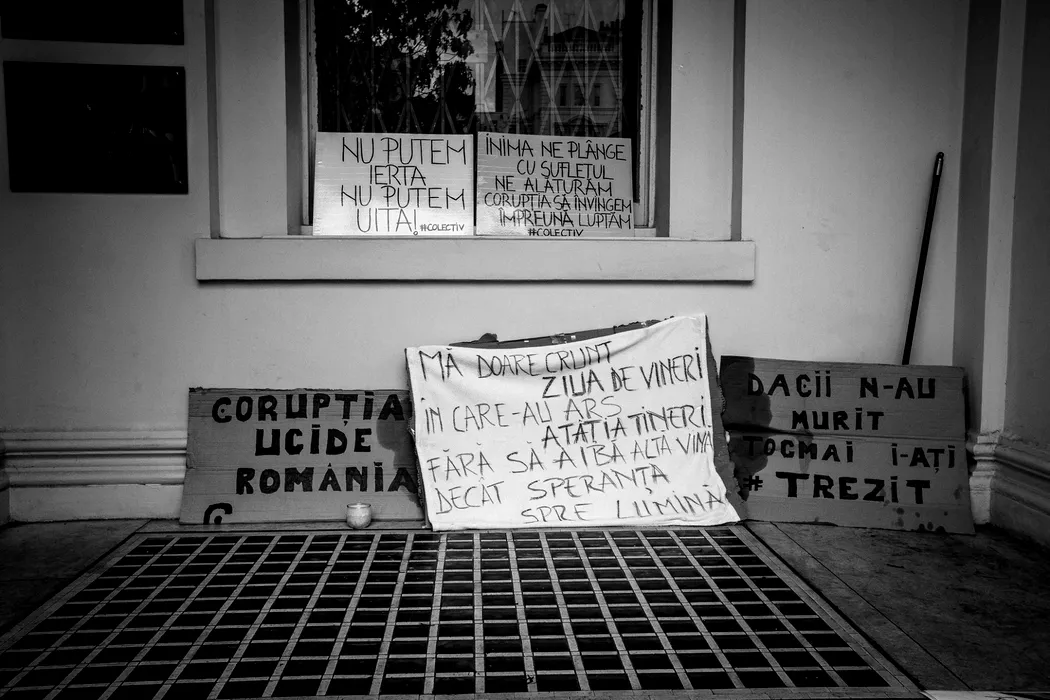 NU PUTEM
IERTA
NU PUTEM
UITA! #COLECTIV
INIMA NE PLÂNGE
CU SUFLETUL
NE ALĂTURĂM
CORUPȚIA SĂ ÎNVINGEM
ÎMPREUNĂ LUPTĂM
#COLECTIV
CORUPȚIA
UCIDE
ROMÂNIA
MĂ DOARE CRUNT
ZIUA DE VINERI
ÎN CARE-AU ARS
ATÂȚIA TINERI
FĂRĂ SĂ AIBĂ ALTĂ VINĂ
DECÂT SPERANȚA
SPRE LUMINĂ
DACII N-AU
MURIT
TOCMAI I-AȚI
# TREZIT